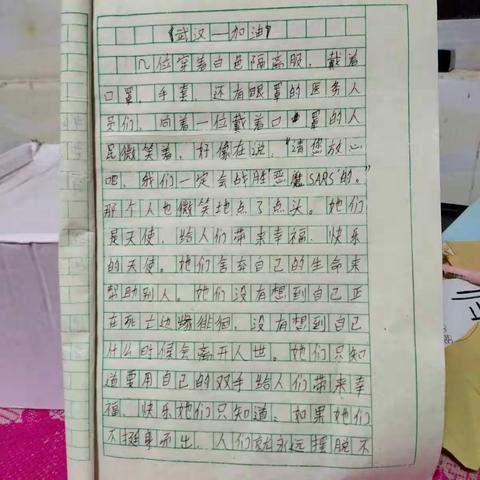 《武汉—加油》
几位穿着白色隔离服，戴着
口罩，手套，还有眼罩的医务人
员们，向着一位戴着口罩的人
民微笑着，好像在说，“请您放心
吧，我们一定会战胜恶魔SARS的。”
那个人也微笑地点了点头。她们
是天使，给人们带来幸福、快乐
的天使。她们舍弃自己的生命来
帮助别人。她们没有想到自己正
在死亡边缘徘徊，没有想到自己
什么时候会离开人世。她们只知
道要用自己的双手给人们带来幸
福、快乐她们只知道，如果她们
不挺身而出，人们就永远摆脱不